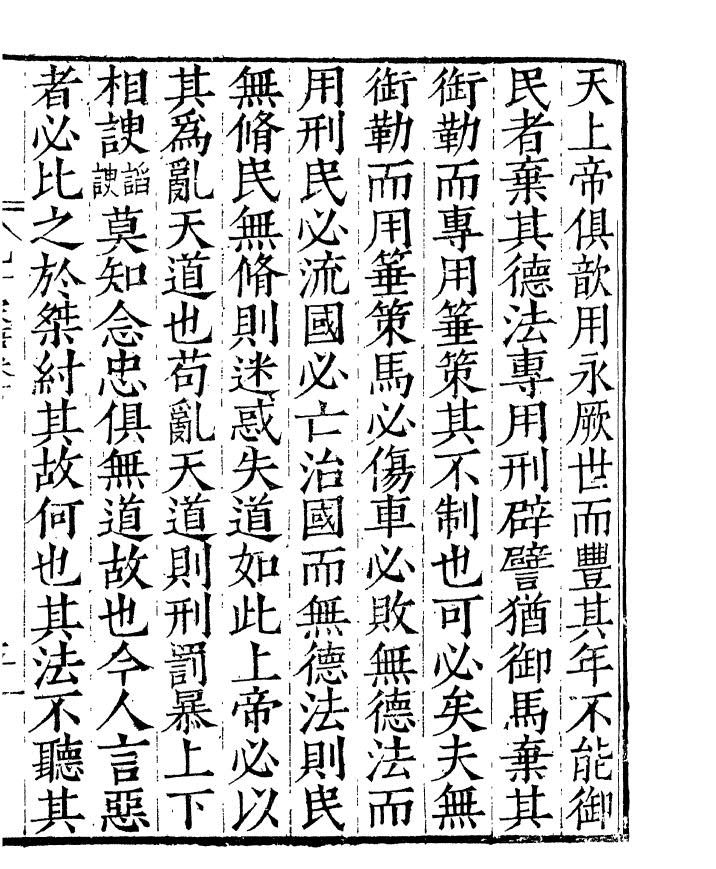 天上帝俱歆用永厥世而豐其年不能御
民者棄其德法專用刑辟譬猶御馬棄其
銜勒而專用箠策其不制也可必矣夫無
銜勒而用箠策馬必傷車必敗無德法而
用刑民必流國必亡治國而無德法則民
無脩民無脩則迷惑失道如此上帝必以
其爲亂天道也苟亂天道則刑罰暴上下
相諛諂諛莫知念忠俱無道故也今人言惡
者必比之於桀紂其故何也其法不聽其